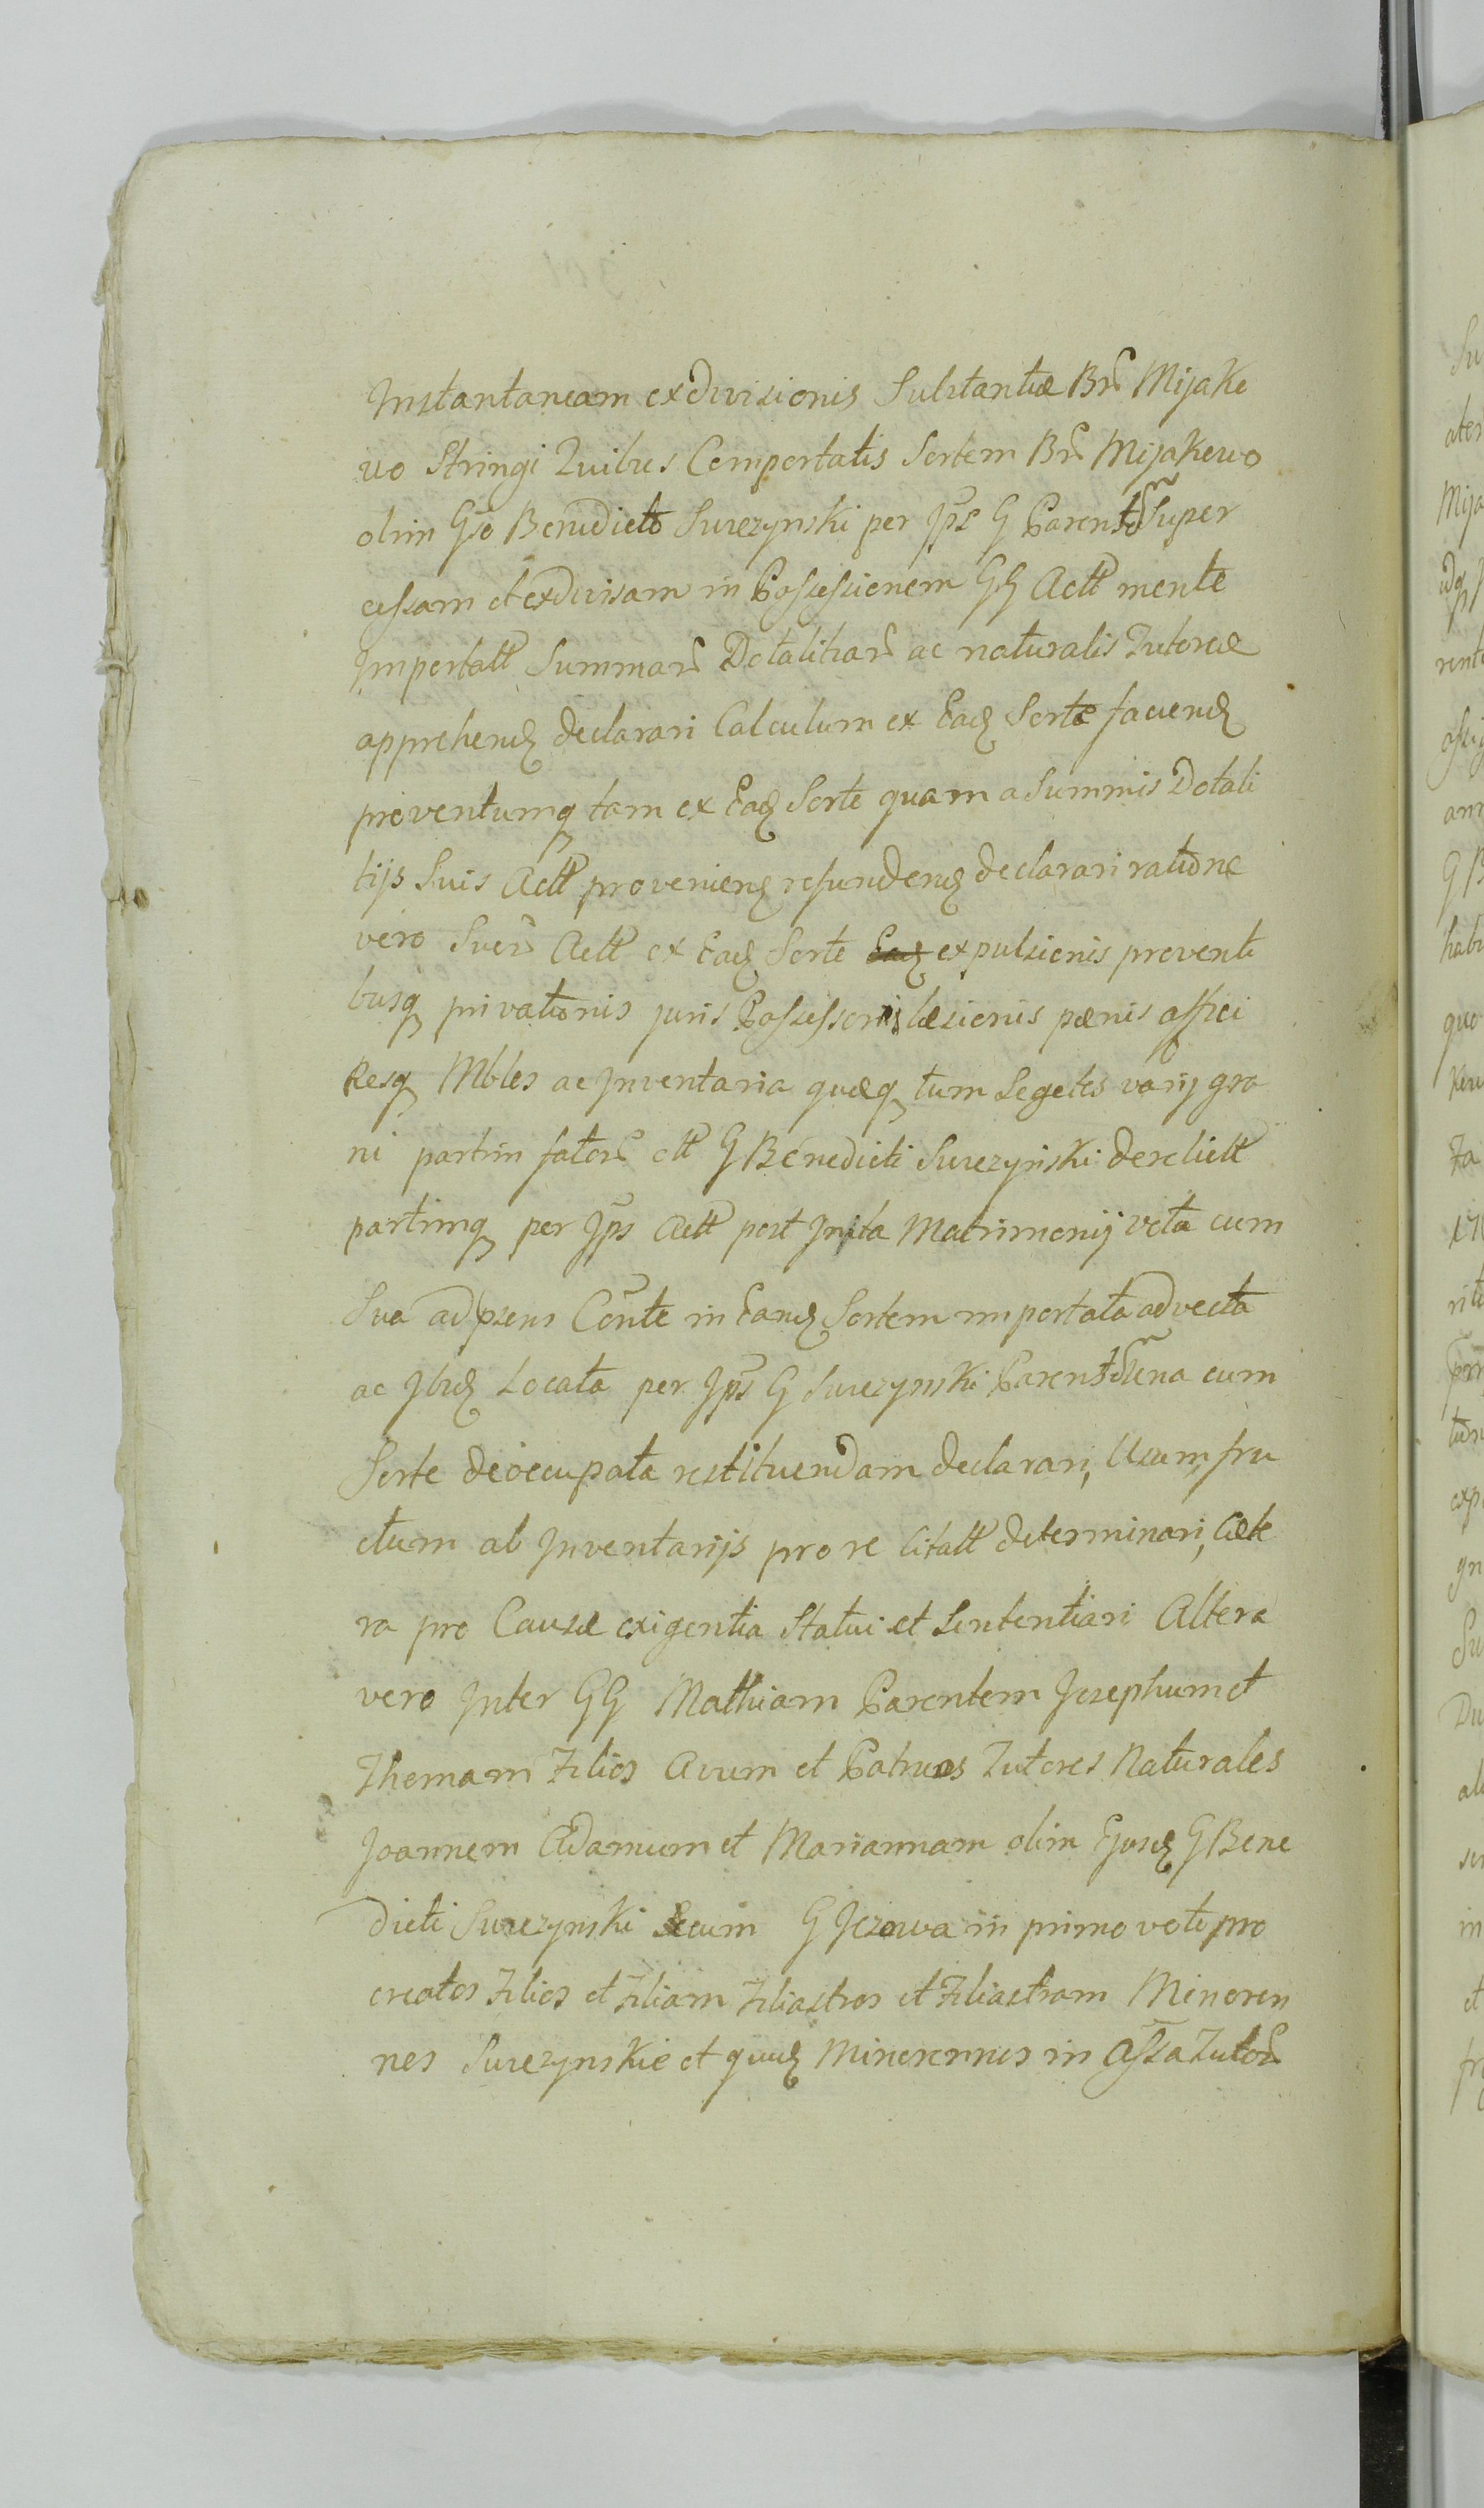 Instantaneam exdivisionis Substantiæ Brũ Mijake
wo Stringi Quibus Comportatis Sortem Brũ Mijakowo
olim Gso Benedicto Surezynski per Ips G Parentẽ Super
cessam et exdivisam in Possessionem GG Actt mente
Importatt Summarũ Dotalitiarũ ac naturalis Tutoriæ
apprehend declarari Calculum ex Ead Sorte faciend
proventumq tam ex Ead Sorte quam a Summis Dotali
tijs Suis Actt proveniend refundend declarari ratione
vero Suerũ Actt ex Ead Sorte expulsionis proventi
busq privationis juris Possessorij læsionis pænis affici
Resq Mbles ac Inventaria quæq tum Segetes varij gra
ni partim fatorũ ott G Benedicti Surezynski derelictt
partimq per Ips Actt post Inita Matrimonij vota cum
Sua ad præns Conte in Eand Sortem importata advecta
ac Ibid Locata per Ips G Surezynski Parentẽ Una cum
Sorte deoccupata restituendam declarari, Usumfru
ctum ab Inventarijs pro re Citatt determinari, Cæte
ra pro Causæ exigentia Statui et Sententiari Altera
vero Inter GG Mathiam Parentem Josephum et
Thomam Filios Avum et Patruos Tutores Naturales
Joannem Adamum et Mariannam olim Ejusd G Bene
dicti Surezynski Secum G Jezowa in primo voto pro
creatos Filios et Filiam Filiastros et Filiastram Minoren
nes Surezynskie et quid Minorennes in Assa Tutorũ